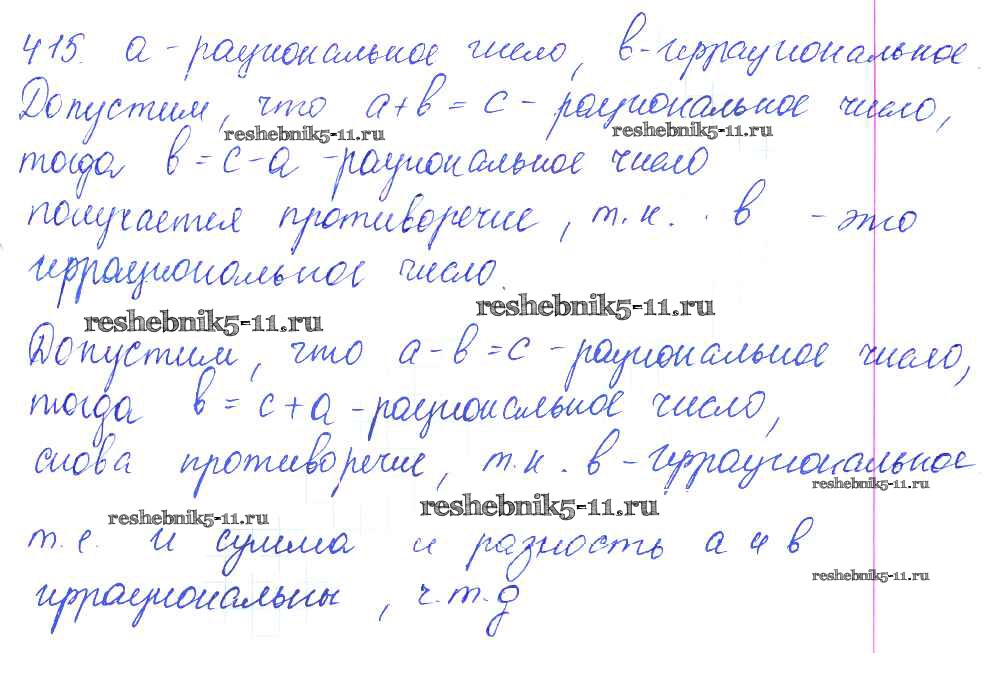 415. а - рациональное число, в - иррациональное.
Допустим, что а+в = с - рациональное число,
reshebnik5-11.ru reshebnik5-11.ru
тогда в = с-а - рациональное число
получается противоречие, т.к. в - это
иррациональное число.
reshebnik5-11.ru reshebnik5-11.ru
Допустим, что а-в=с - рациональное число,
тогда в = с+а - рациональное число,
снова противоречие, т.к. в - иррациональное
reshebnik5-11.ru
reshebnik5-11.ru reshebnik5-11.ru
т.е. и сумма и разность а и в
reshebnik5-11.ru
иррациональны, ч.т.д